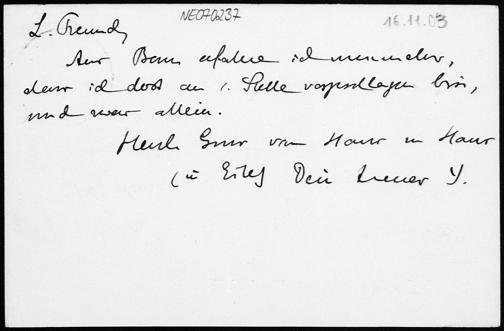 NE070237
16.11.03
L. Freund,
Aus Bonn erfahre ich nunmehr,
dass ich dort an 1. Stelle vorgeschlagen bin,
und zwar allein.
Herzl. Gruss von Haus zu Haus
(in Eile) Dein treuer